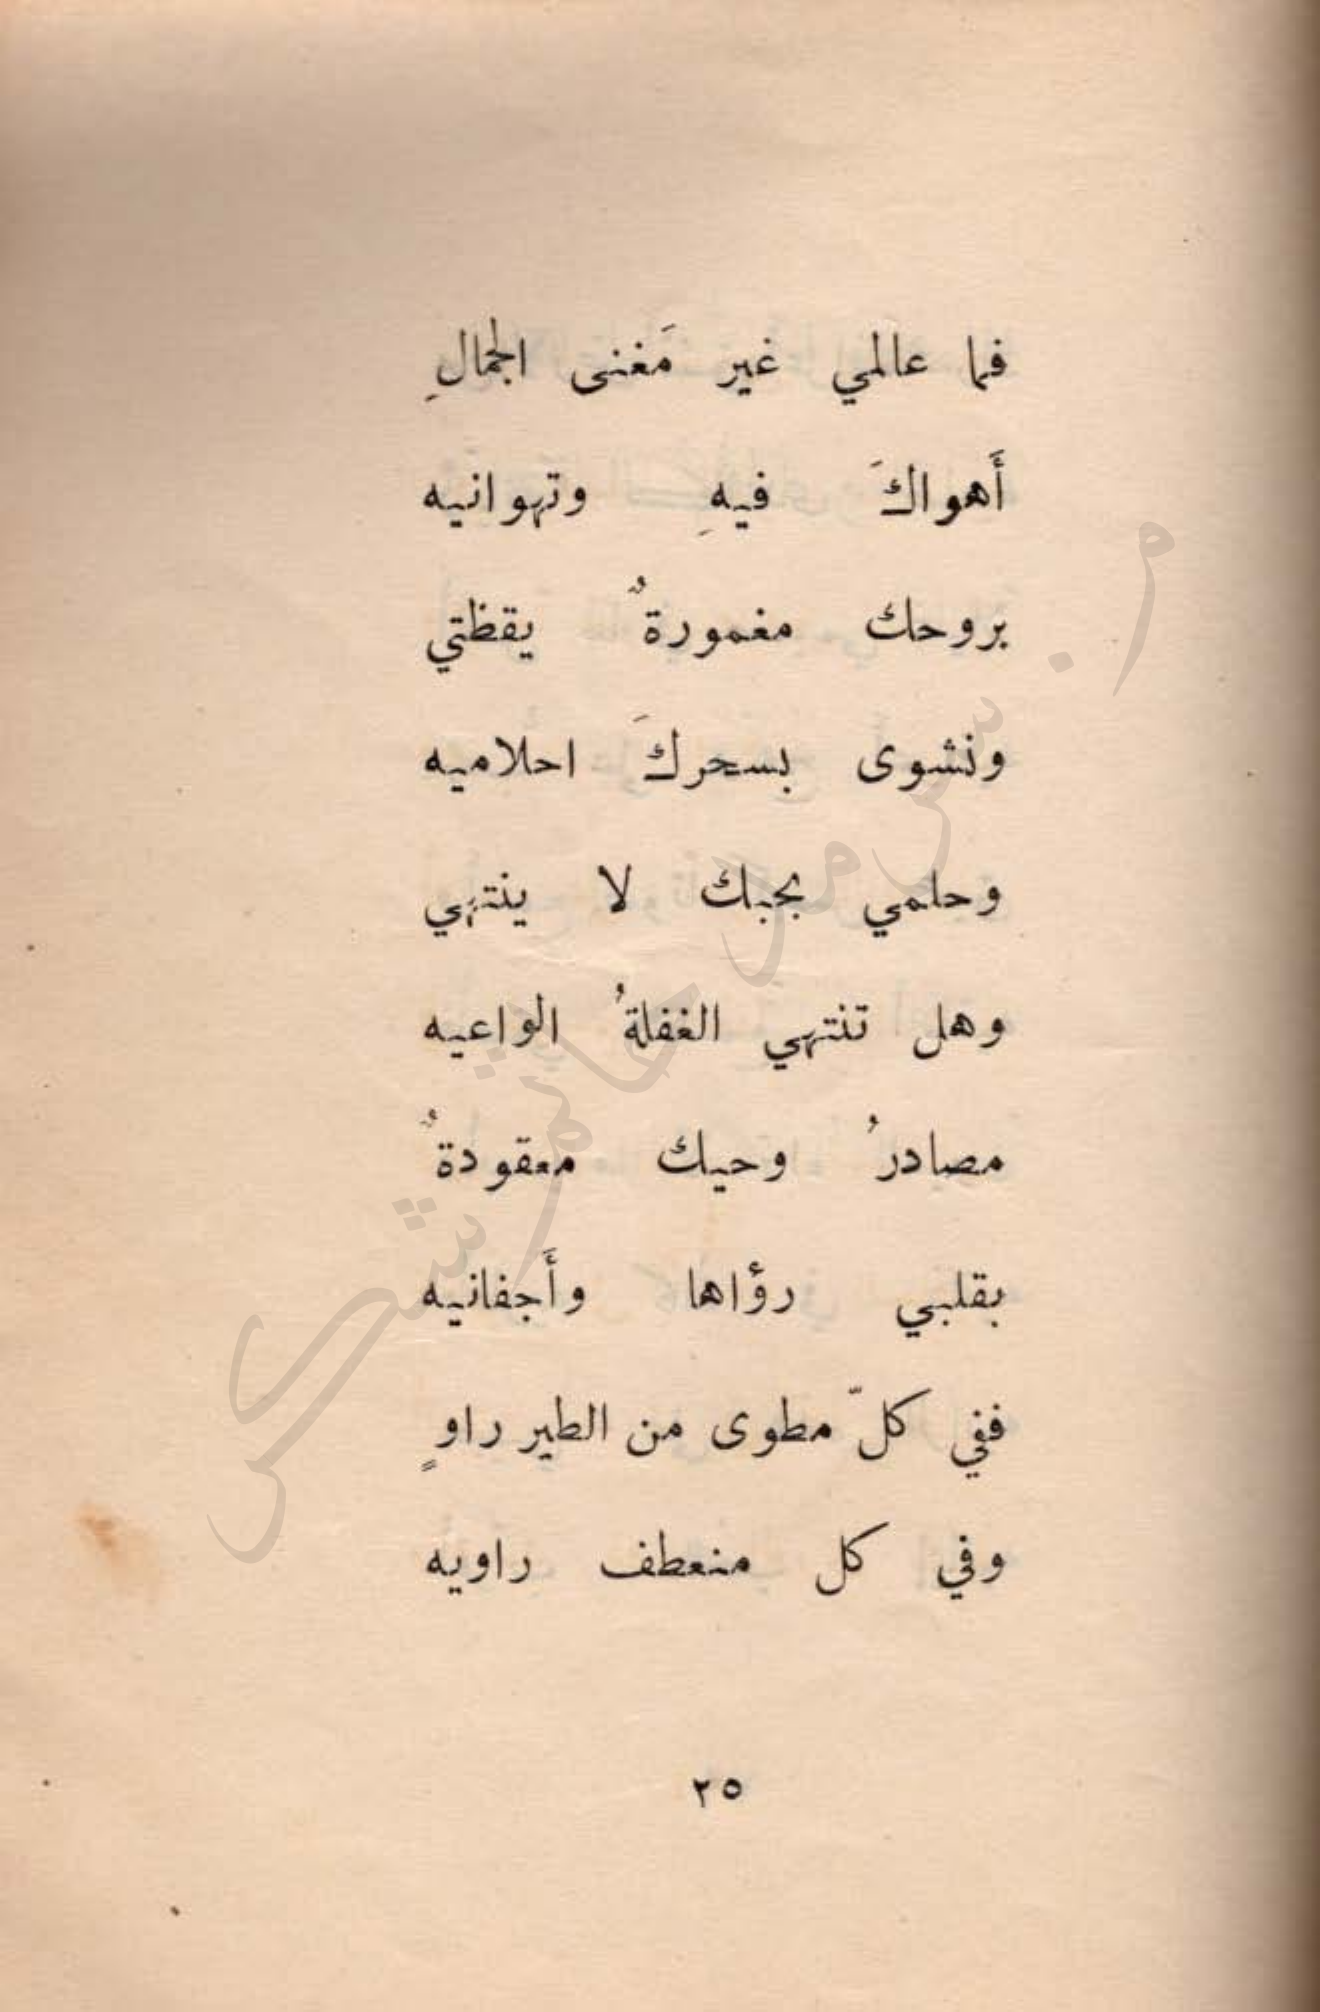 فما عالمي غير مَغنى الجمالِ
أَهواكَ فيهِ وتهوانيه
بروحك مغمورةٌ يقظتي
ونشوى بسحركَ احلاميه
وحلمي بحبك لا ينتهي
وهل تنتهي الغفلةُ الواعيه
مصادرُ وحيك معقودةٌ
بقلبي رؤاها وأَجفانيه
ففي كلّ مطوى من الطير راوٍ
وفي كل منعطف راويه
٢٥